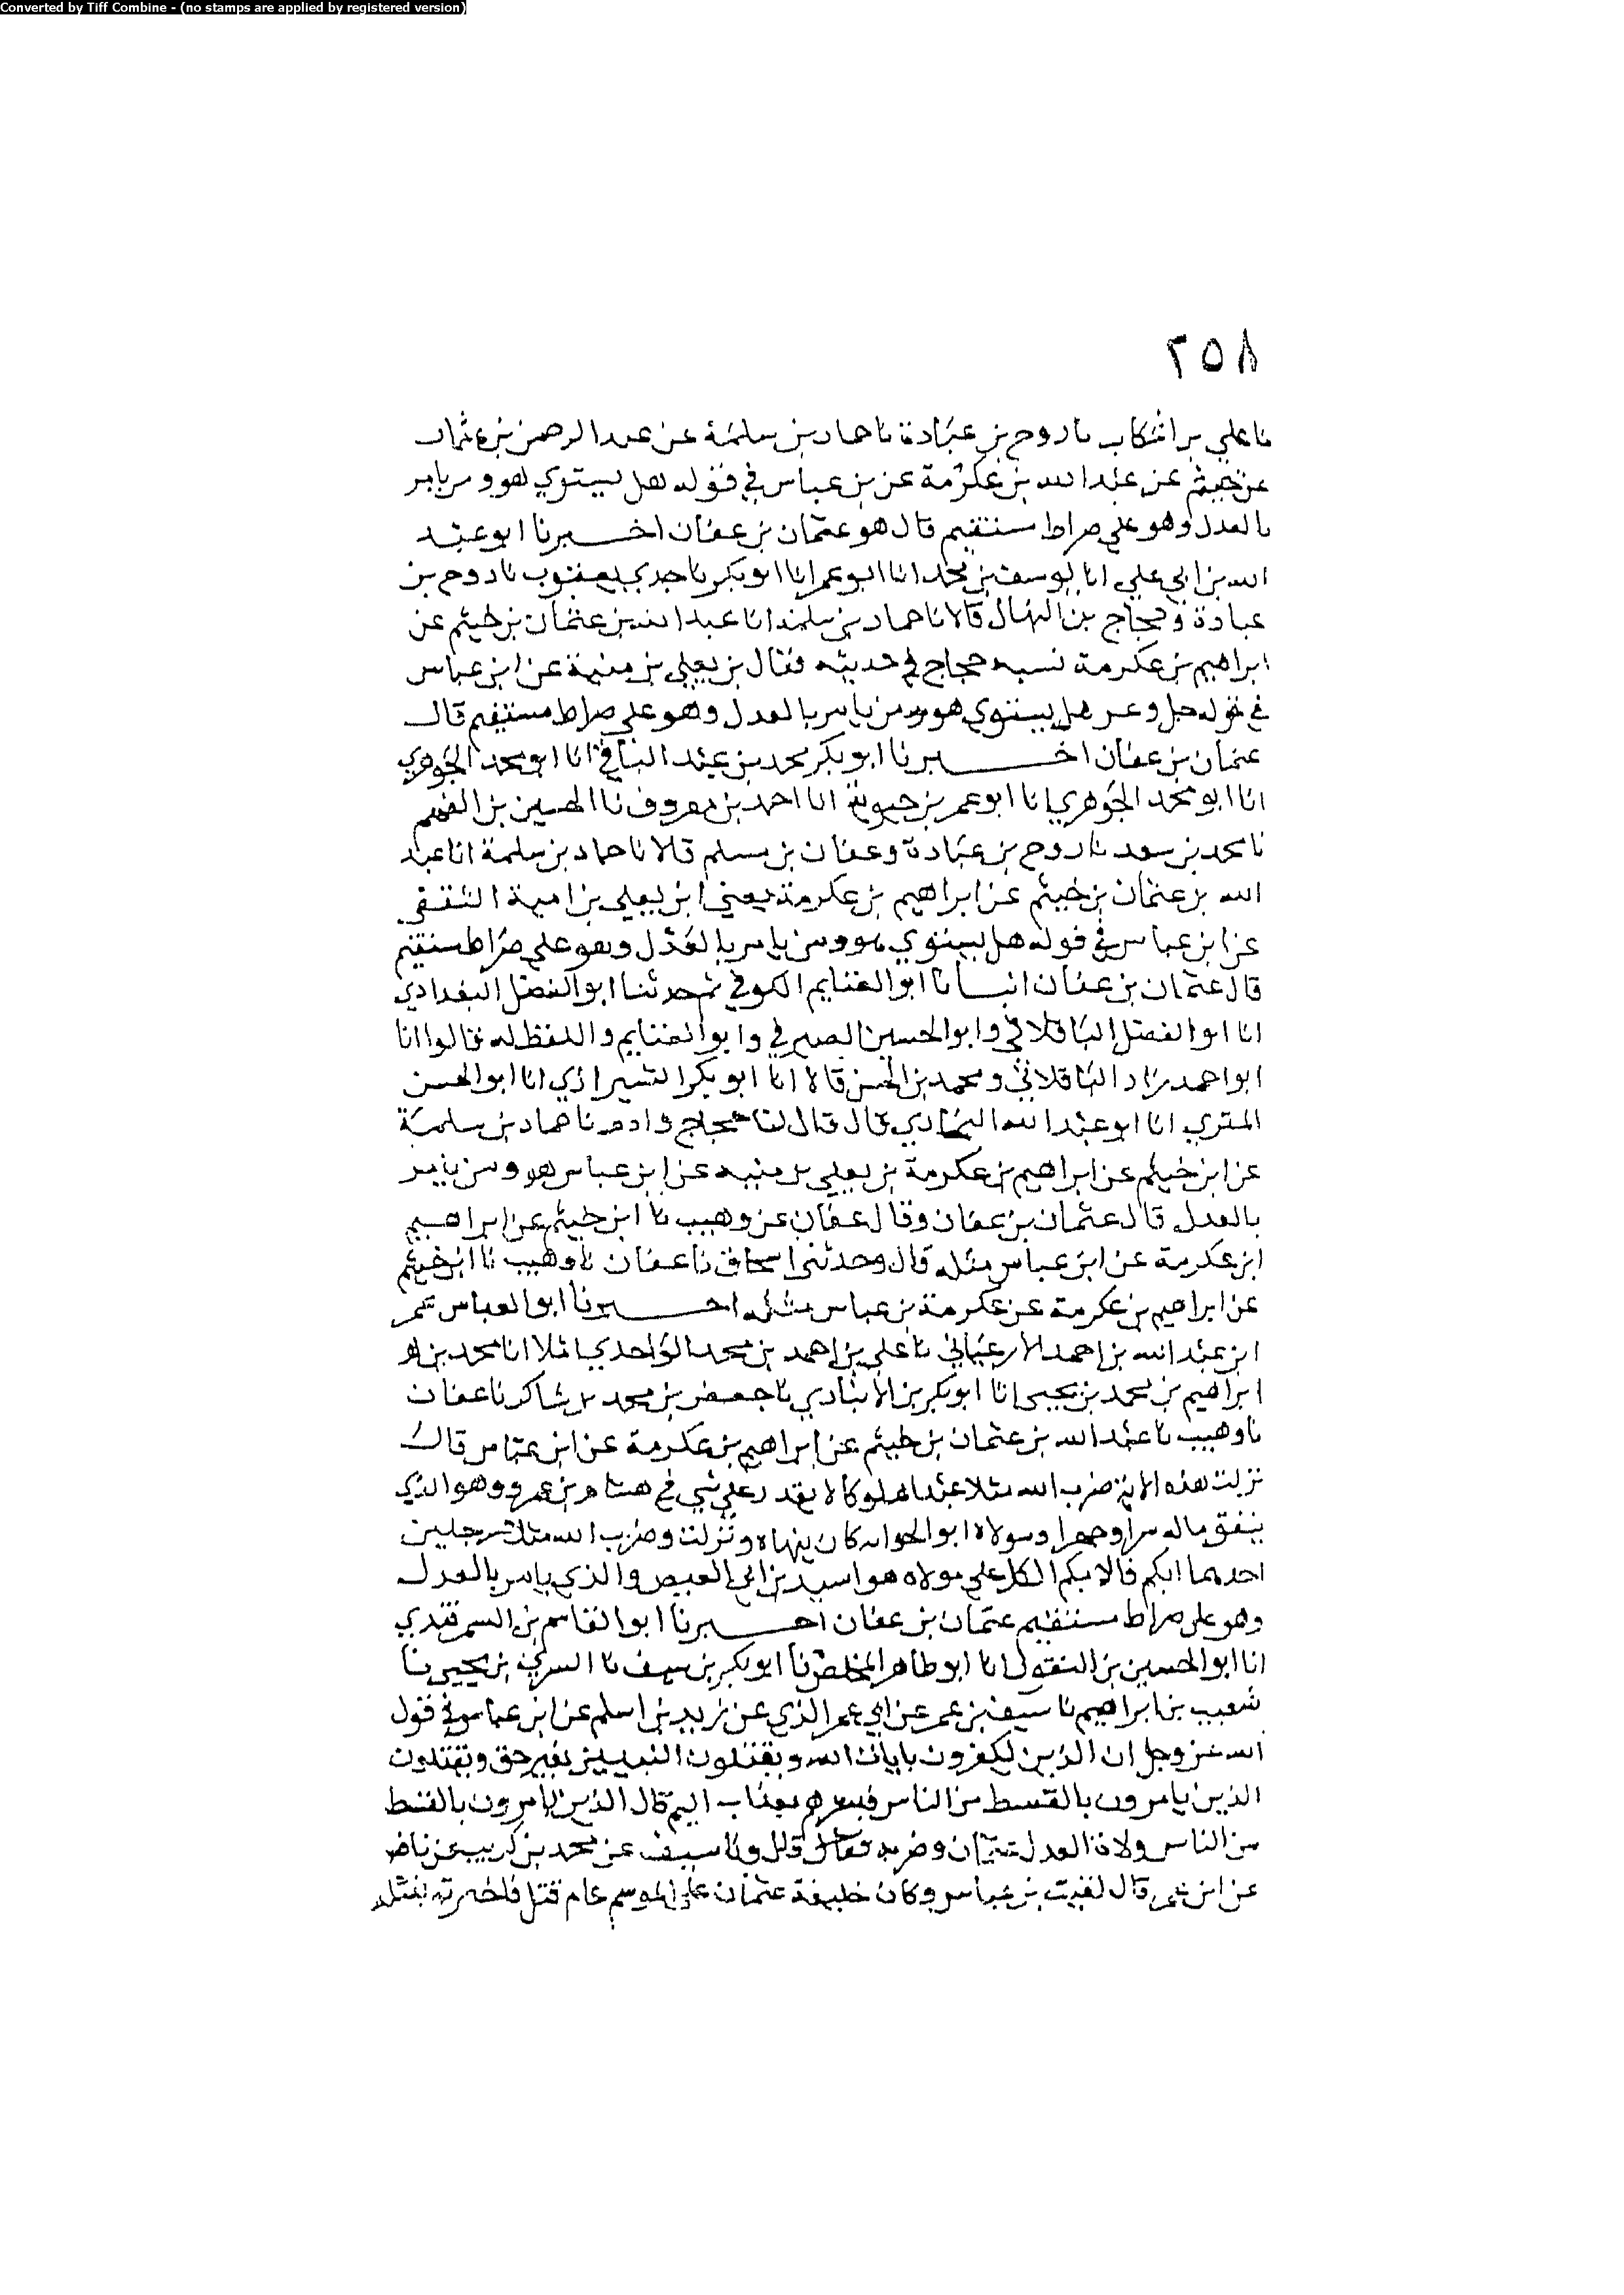 Converted by Tiff Combine - (no stamps are applied by registered version)
٢٥٨
نا علي بن اشكاب نا روح بن عبادة نا حماد بن سلمة عن عبد الرحمن بن عثمان
عن خيثم عن عبد الله بن عكرمة عن بن عباس في قوله هل يستوي هو ومن يامر
بالعدل وهو علي صراط مستقيم قال هو عثمان بن عفان اخبرنا ابو عبد
الله بن ابي علي انا يوسف بن محمد انا ابو عمر انا ابو بكر نا جدي يعقوب نا روح بن
عبادة وحجاج بن المنهال قالا نا حماد بن سلمة انا عبد الله بن عثمان بن خيثم عن
ابراهيم بن عكرمة نسبه حجاج في حديثه فقال بن يعلي بن منية عن ابن عباس
في قوله جل وعز هل يستوي هو ومن يامر بالعدل وهو علي صراط مستقيم قال
عثمان بن عفان اخبرنا ابو بكر محمد بن عبد الباقي انا ابو محمد الجوهري
انا ابو محمد الجوهري انا ابو عمر بن حيوية انا احمد بن معروف نا الحسين بن الفهم
نا محمد بن سعد نا روح بن عبادة وعفان بن مسلم قالا نا حماد بن سلمة انا عبد
الله بن عثمان بن خيثم عن ابراهيم بن عكرمة يعني ابن يعلي بن امية الثقفي
عن ابن عباس في قوله هل يستوي هو ومن يامر بالعدل وهو علي صراط مستقيم
قال عثمان بن عفان انبانا ابو الغنايم الكوفي ثم حدثنا ابو الفضل البغدادي
انا ابو الفضل الباقلاني وابو الحسين الصيرفي وابو الغنايم واللفظ له قالوا انا
ابو احمد زاد الباقلاني ومحمد بن الحسن قالا انا ابو بكر الشيرازي انا ابو الحسن
المقري انا ابو عبد الله البخاري قال قال لنا حجاج وادم نا حماد بن سلمة
عن ابن خيثم عن ابراهيم بن عكرمة بن يعلي بن منيه عن ابن عباس هو ومن يامر
بالعدل قال عثمان بن عفان وقال عفان عن وهيب نا ابن خيثم عن ابراهيم
ابن عكرمة عن ابن عباس مثله قال وحدثني اسحاق نا عفان نا وهيب نا ابن خيثم
عن ابراهيم بن عكرمة عن عكرمة بن عباس مثله اخبرنا ابو العباس عمر
ابن عبد الله بن احمد الارغياني نا علي بن احمد بن محمد الواحدي املا انا محمد بن
ابراهيم بن محمد بن يحيى انا ابو بكر بن الانباري نا جعفر بن محمد بن شاكر نا عفان
نا وهيب نا عبد الله بن عثمان بن خيثم عن ابراهيم بن عكرمة عن ابن عباس قال
نزلت هذه الاية ضرب الله مثلا عبدا مملوكا لا يقدر علي شي في هشام بن عمرو وهو الذي
ينفق ماله سرا وجهرا ومولاه ابو الجوا كان ينهاه ونزلت وضرب الله مثلا رجلين
احدهما ابكم فالابكم الكل علي مولاه هو اسيد بن ابي العيص والذي يامر بالعدل
وهو علي صراط مستقيم عثمان بن عفان اخبرنا ابو القاسم بن السمرقندي
انا ابو الحسين بن النقور انا ابو طاهر المخلص نا ابو بكر بن سيف نا السري بن يحيي نا
شعيب بن ابراهيم نا سيف بن عمر عن ابي عمر الذي عن زيد بن اسلم عن ابن عباس في قول
الله عز وجل ان الذين يكفرون بايات الله ويقتلون النبيين بغير حق ويقتلون
الذين يامرون بالقسط من الناس فبشرهم بعذاب اليم قال الذين يامرون بالقسط
من الناس ولاة العدل عثمان وضربه قال ونا سيف عن محمد بن كريب عن نافع
عن ابن عمر قال لقيت بن عباس وكان خليفة عثمان علي الموسم عام قتل فاخبرته بقتله